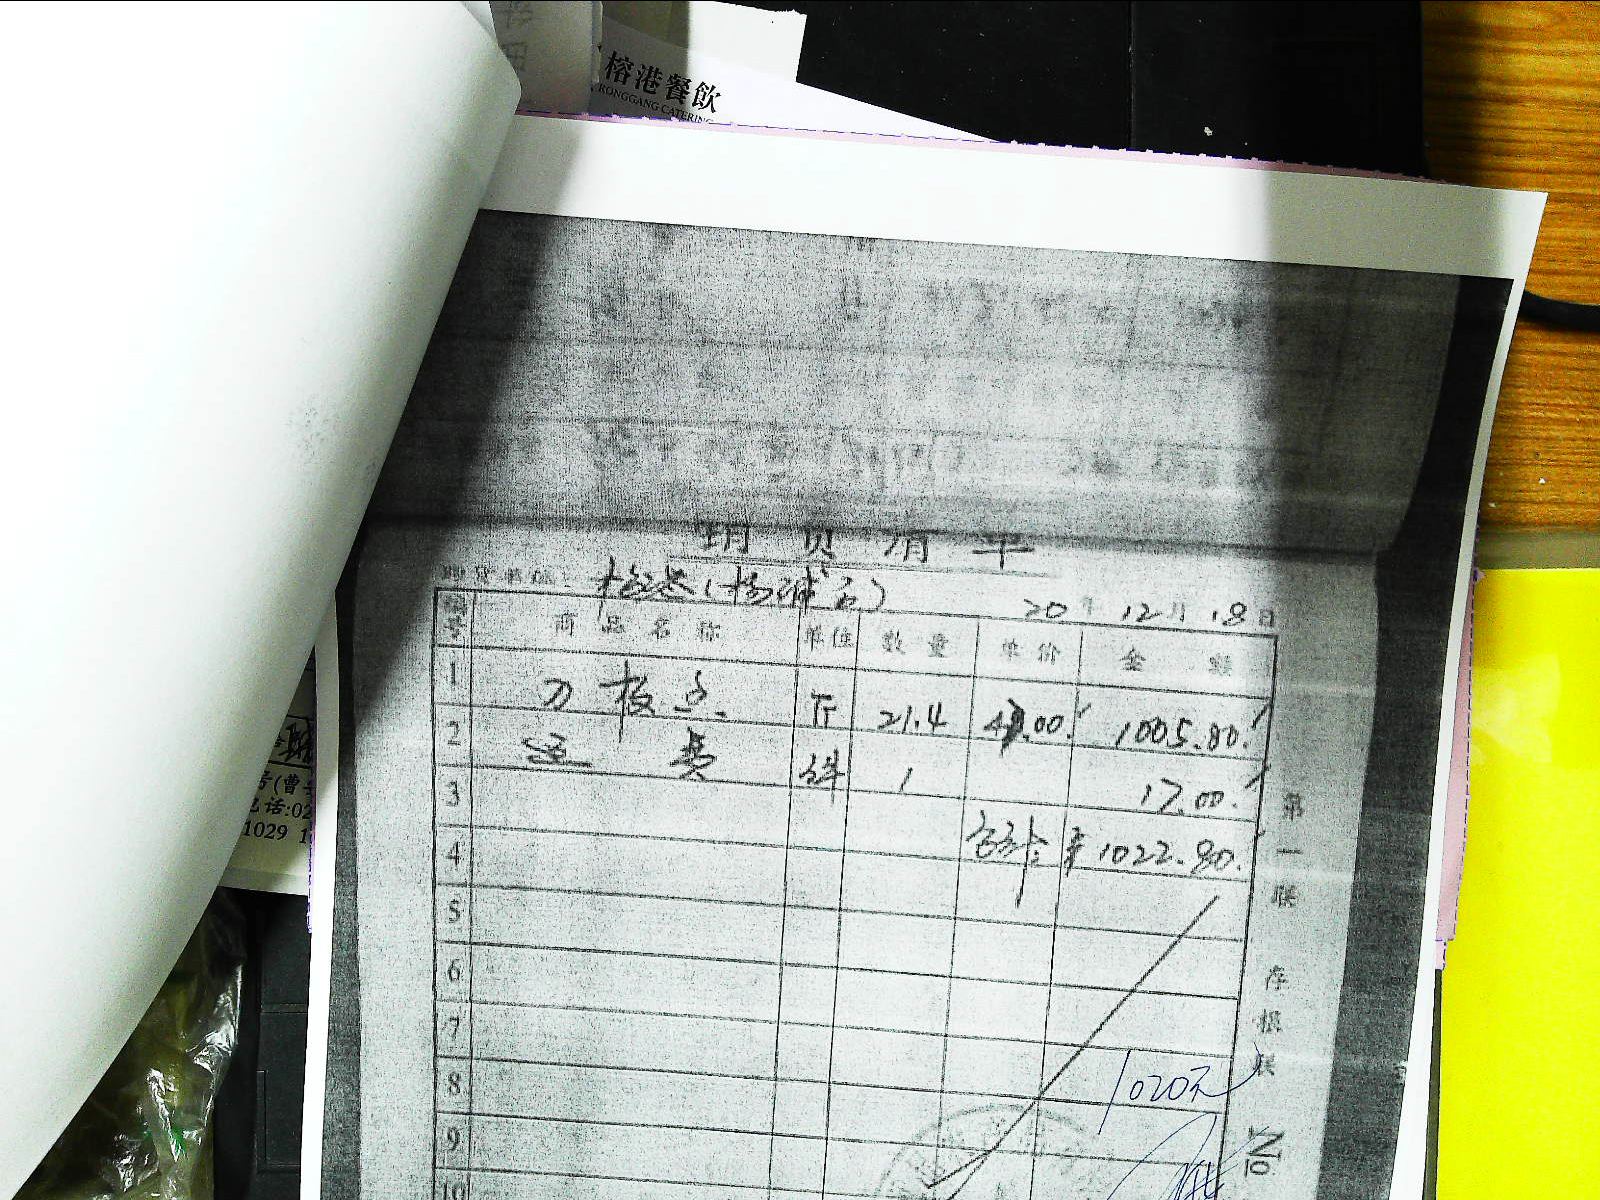 榕港餐飲
RONGGANG CATERING
销货清单
20 年 12 月 18 日
编号 商品名称 单位 数量 单价 金额
1 刀板鱼 斤 21.4 47.00 1005.80
2 运费 件 1 17.00
3 合计 ¥1022.80
4
5
6
7
8 1020元
9
10
第一联 存根联
No
号(曹
电话:02
1029 1